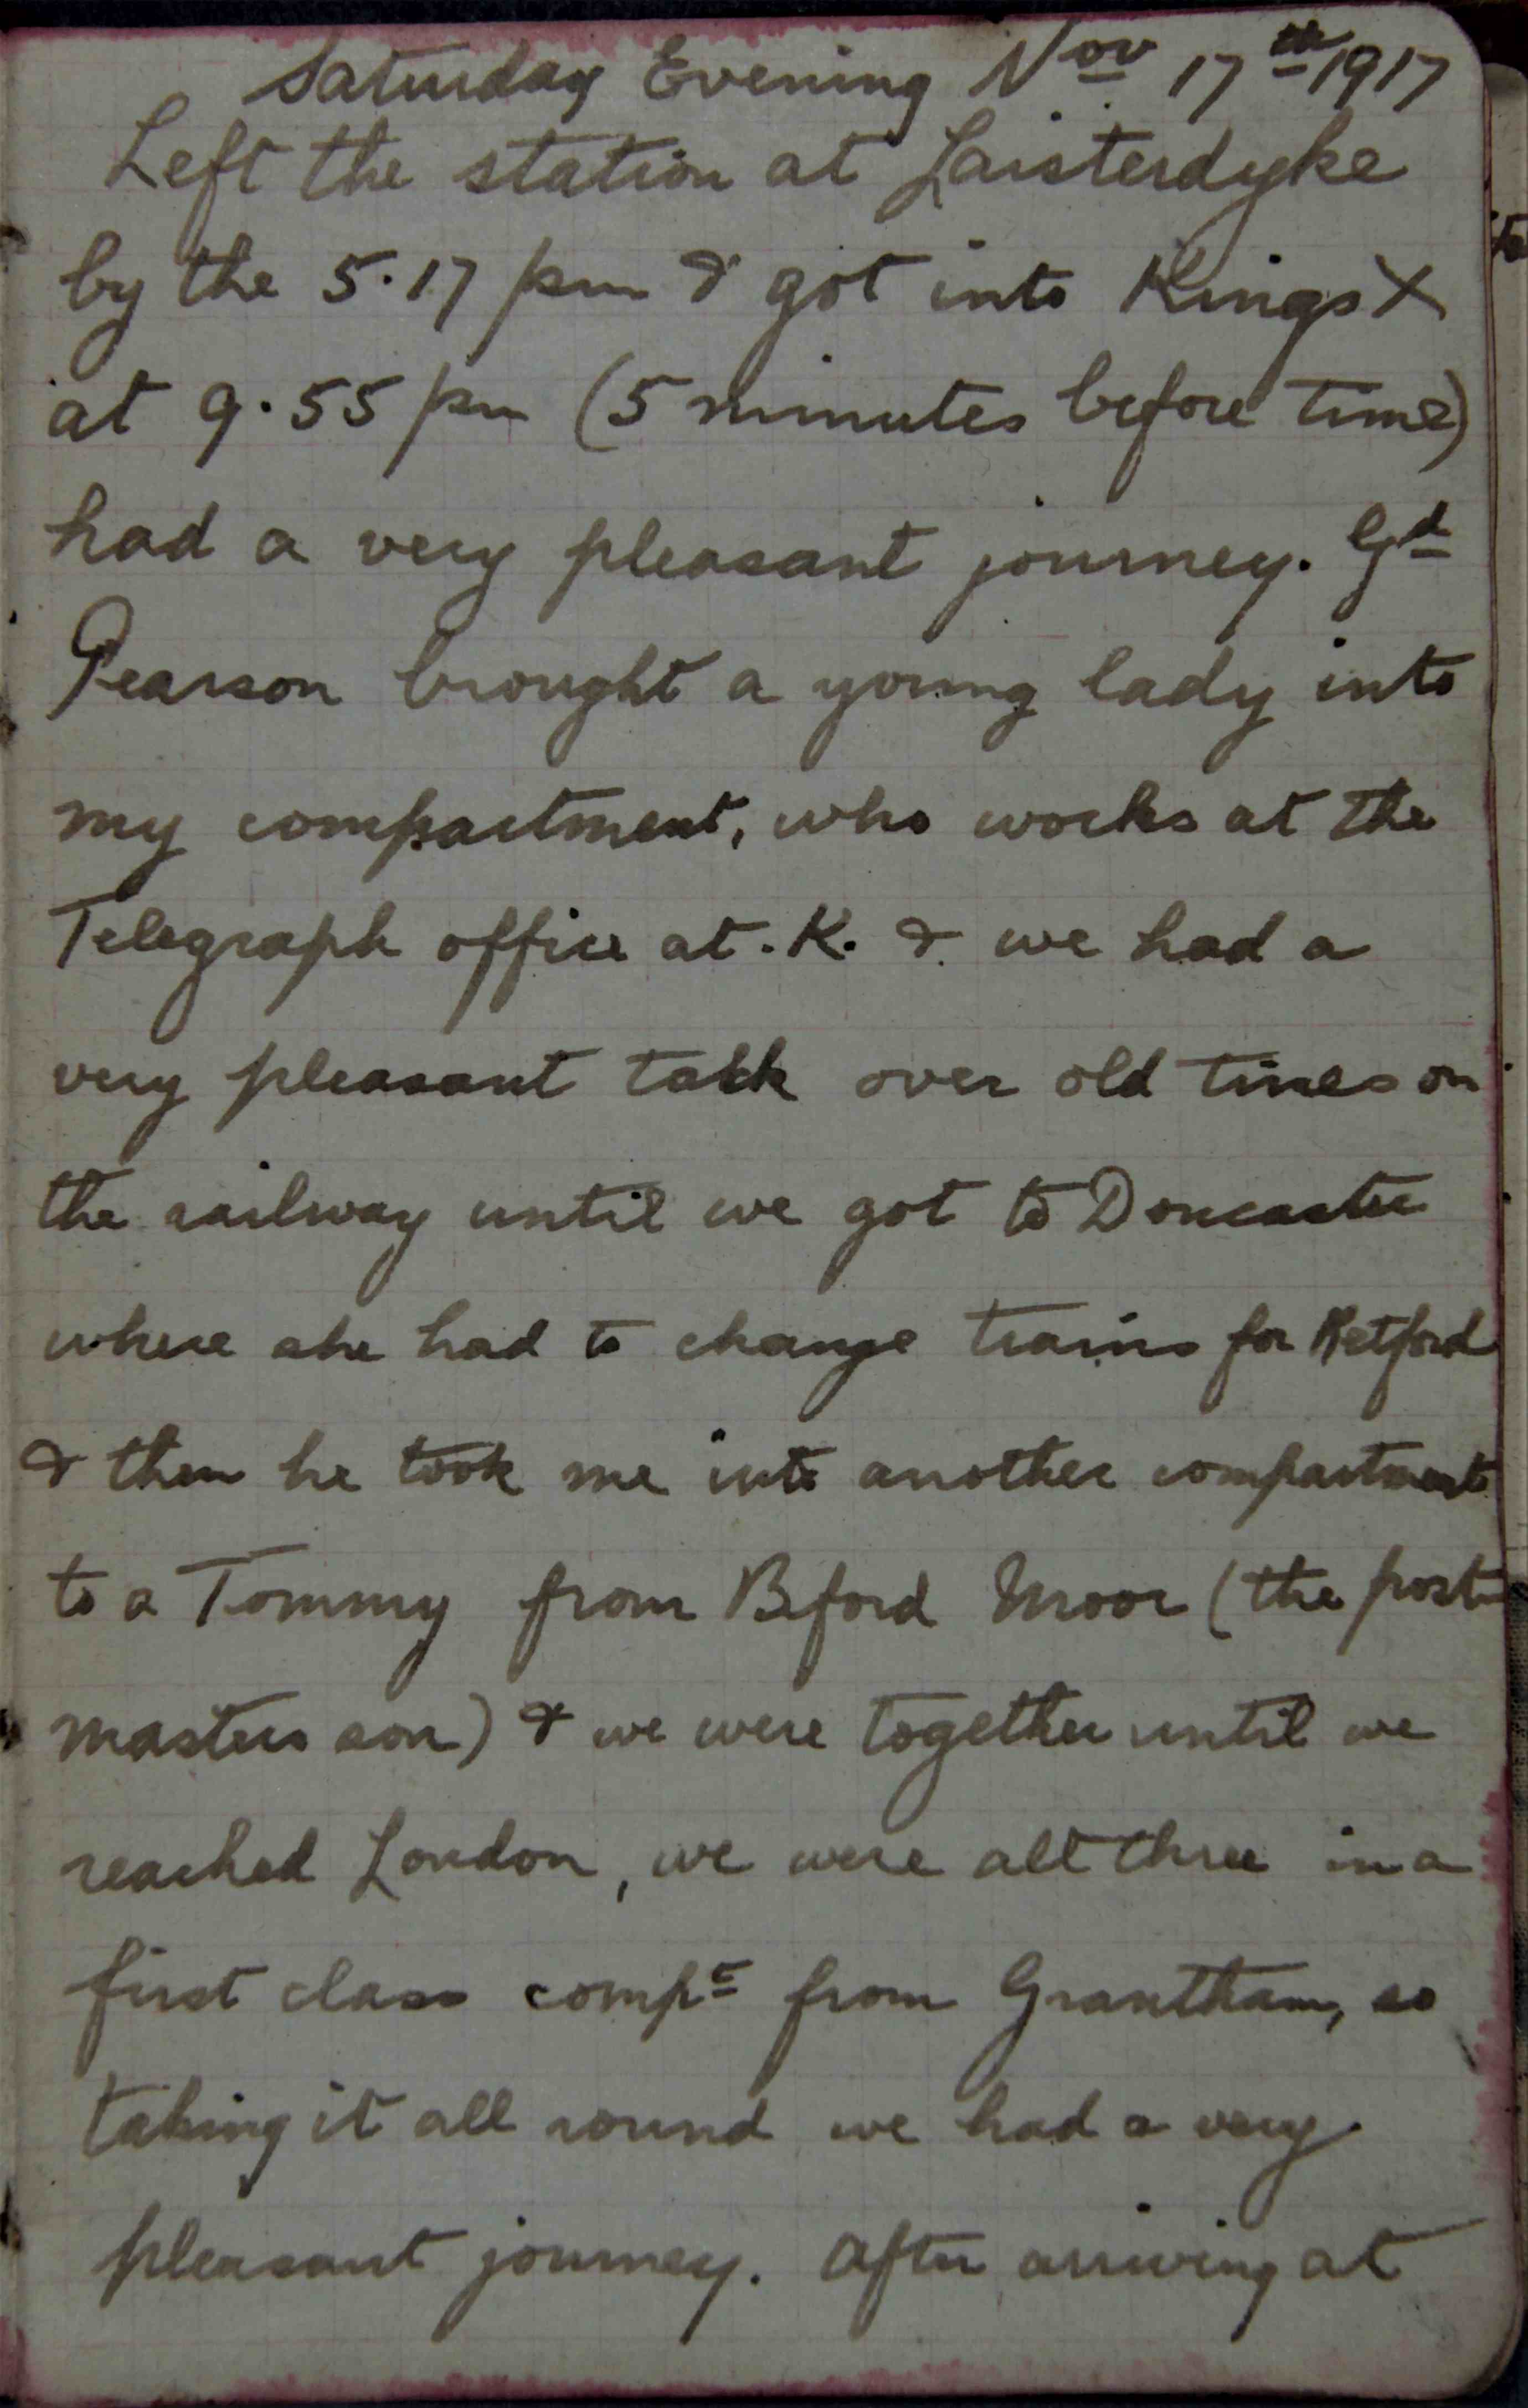 Saturday Evening Nov 17th 1917
Left the station at Laisterdyke
by the 5.17 pm & got into Kings X
at 9.55 pm (5 minutes before time)
had a very pleasant journey. Gd
Pearson brought a young lady into
my compartment, who works at the
Telegraph office at. K. & we had a
very pleasant talk over old times on
the railway until we got to Doncaster
where she had to change trains for Retford
& then he took me into another compartment
to a Tommy from Bford Moor (the post
masters son) & we were together until we
reached London, we were all three in a
first class compt from Grantham, so
taking it all round we had a very
pleasant journey. After arriving at